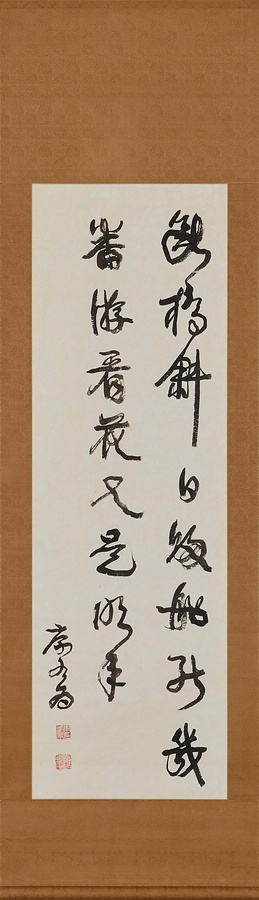 斷橋斜日歸船能幾
番游看花又是明年
康有為